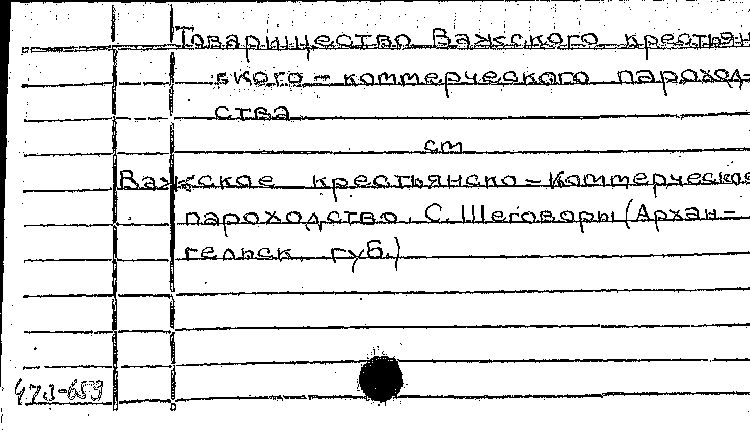 Товарищество Важского крестьян
ского-коммерческого пароход-
ства
см
Важское крестьянско-коммерческое
пароходство. С. Шеговоры (Архан-
гельск. губ.)
473-659